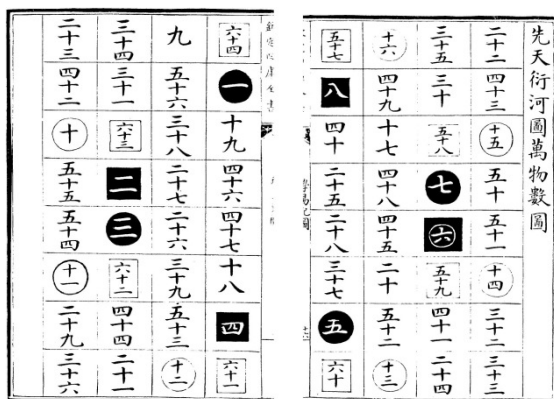 先天衍河圖萬物數圖
二十二 四十三 十五 五十 五十一 十四 三十二 三十三
三十五 三十 五十八 七 六 五十九 四十一 二十四
十六 四十九 十七 四十八 四十五 二十 五十二 十三
五十七 八 四十 二十五 二十八 三十七 五 六十
六十四 一 十九 四十六 四十七 十八 四 六十一
九 五十六 三十八 二十七 二十六 三十九 五十三 十二
三十四 三十一 六十三 二 三 六十二 四十四 二十一
二十三 四十二 十 五十五 五十四 十一 二十九 三十六